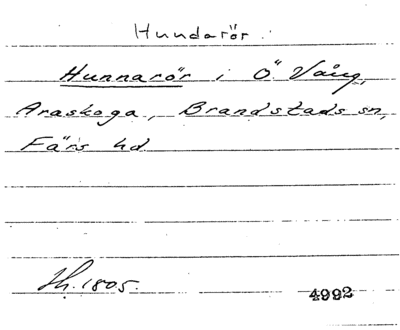 Hundarör.
Hunnarör i Ö. Vång,
Araskoga, Brandstads sn,
Färs hd
Sh. 1805.
4992